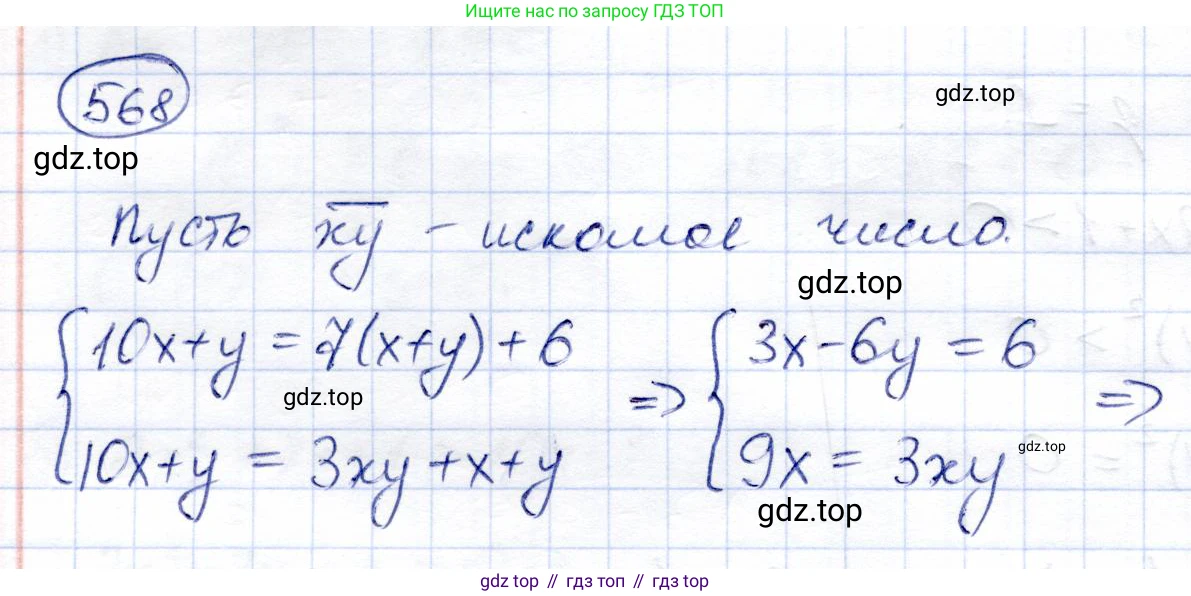 Ищите нас по запросу ГДЗ ТОП
568
gdz.top
gdz.top
Пусть x̅y̅ - искомое число.
gdz.top
{ 10x+y = 7(x+y)+6 => { 3x-6y = 6 =>
gdz.top
10x+y = 3xy+x+y 9x = 3xy
gdz.top
gdz.top
gdz top // гдз топ // гдз top